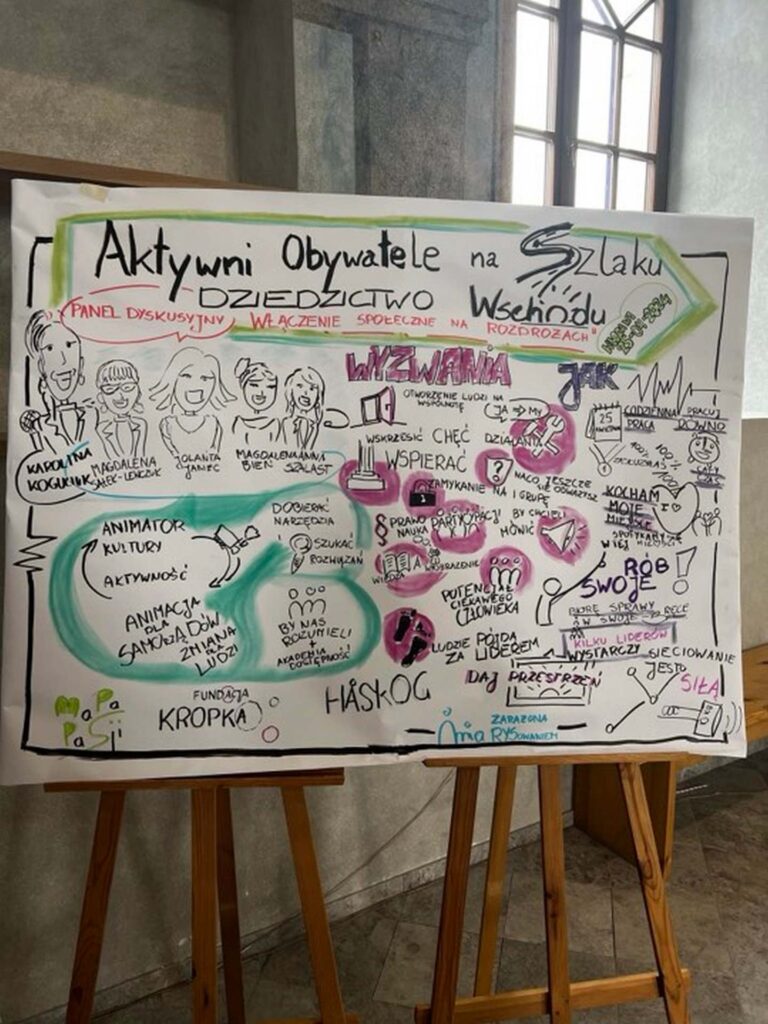 Aktywni Obywatele na Szlaku
DZIEDZICTWO Wschodu
PANEL DYSKUSYJNY WŁĄCZENIE SPOŁECZNE NA ROZDROŻACH"
WYZWANIA
JAK
OTWORZENIE LUDZI NA
WSPÓLNOTĘ
JA → MY
WSKRZESIĆ CHĘĆ DZIAŁANIA
WSPIERAĆ
ZAMYKANIE NA 1 GRUPĘ
NA CO JESZCZE
SIĘ ODWAŻYSZ
§ PRAWO
NAUKA
PARTYCYPACJI
BY CHCIELI
MÓWIĆ
WIEDZA
WYOBRAŻENIE
POTENCJAŁ
CIEKAWEGO
CZŁOWIEKA
LUDZIE PÓJDĄ
ZA LIDEREM
DAJ PRZESTRZEŃ
25
CODZIENNA
PRACA
PRACUJ
RÓWNO
100%
100%
KOCHAM
MOJE
MIEJSCE
I
RÓB
SWOJE !
BIORĘ SPRAWY
W SWOJE RĘCE
KILKU LIDERÓW
WYSTARCZY
SIECIOWANIE
JEST
SIŁĄ
KAROLINA
MAGDALENA
JOLANTA
JANIEC
MAGDALENA
BIEŃ
ANNA
SZALAST
ANIMATOR
KULTURY
AKTYWNOŚĆ
ANIMACJA
DLA
SAMORZĄDÓW
ZMIANA
DLA
LUDZI
DOBIERAĆ
NARZĘDZIA
SZUKAĆ
ROZWIĄZAŃ
BY NAS
ROZUMIELI
+
AKADEMIA
DOSTĘPNOŚCI
MaPa
PaSji
FUNDACJA
KROPKA
HÅSKOG
Ania
ZARAŻONA
RYSOWANIEM